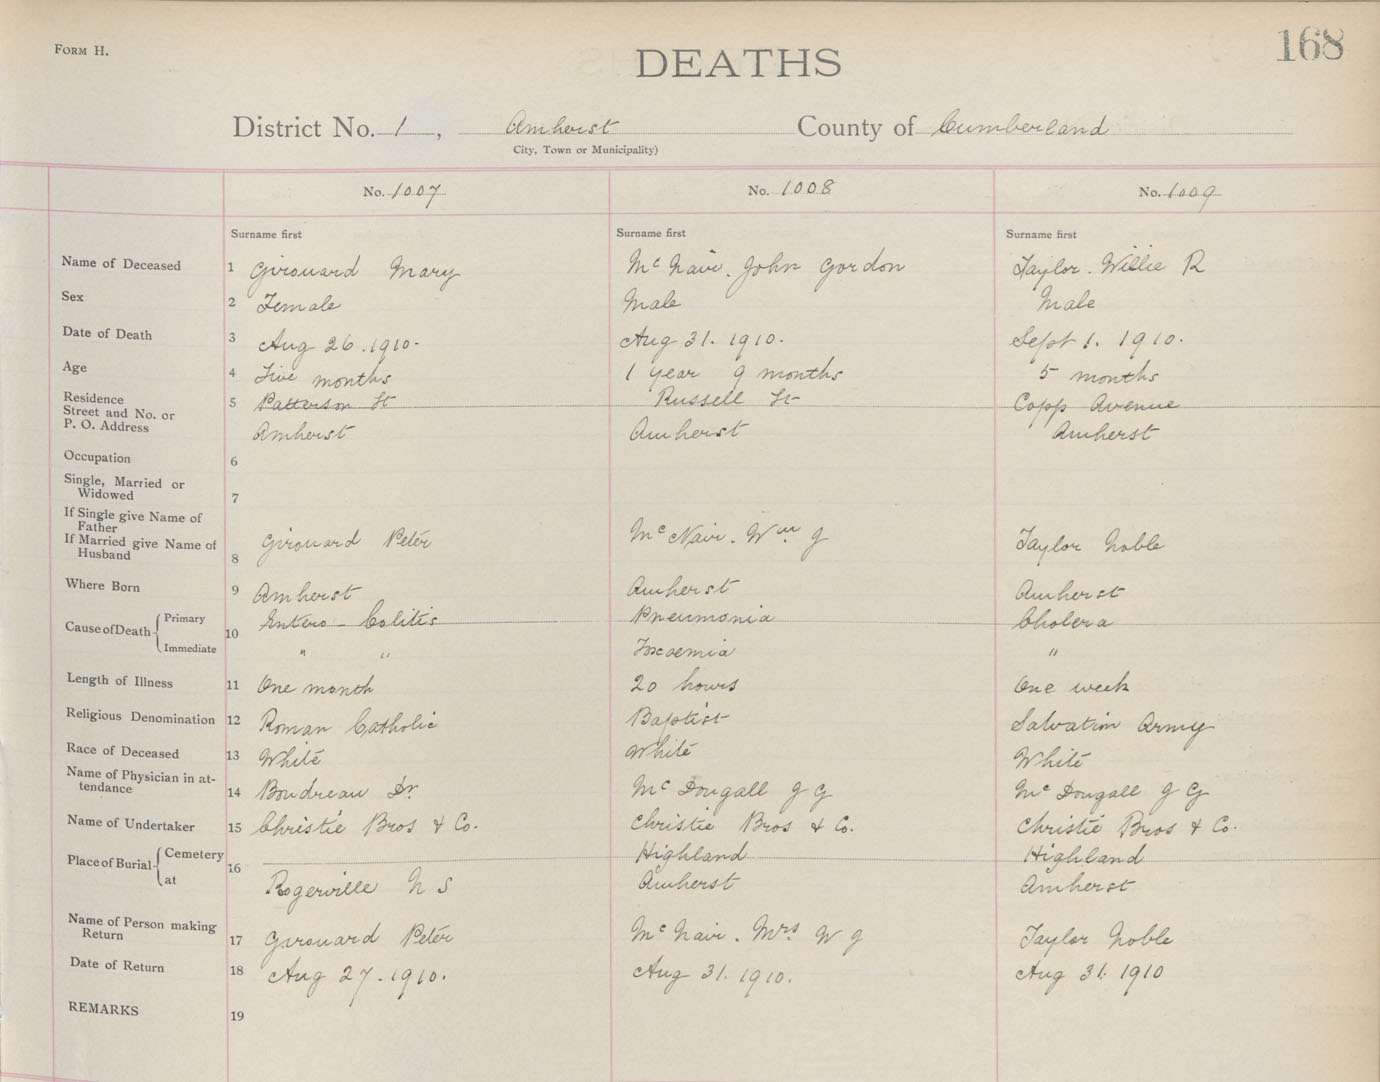 FORM H.
168
DEATHS
District No. 1, Amherst County of Cumberland
City, Town or Municipality)
No. 1007 No. 1008 No. 1009
Surname first Surname first Surname first
Name of Deceased 1 Girouard Mary Mc Nair. John Gordon Taylor. Willie R
Sex 2 Female Male Male
Date of Death 3 Aug 26. 1910. Aug 31. 1910. Sept 1. 1910.
Age 4 Five months 1 year 9 months 5 months
Residence
Street and No. or
P. O. Address
5 Patterson St Russell St Copp Avenue
Amherst Amherst Amherst
Occupation 6
Single, Married or
Widowed 7
If Single give Name of
Father
If Married give Name of
Husband
8 Girouard Peter Mc Nair. Wm. J Taylor Noble
Where Born 9 Amherst Amherst Amherst
Cause of Death Primary
Immediate
10 Entero - Colitis Pneumonia Cholera
" " Toxaemia "
Length of Illness 11 One month 20 hours One week
Religious Denomination 12 Roman Catholic Baptist Salvation Army
Race of Deceased 13 White White White
Name of Physician in at-
tendance 14 Boudreau Dr. Mc Dougall J G Mc Dougall J G
Name of Undertaker 15 Christie Bros & Co. Christie Bros & Co. Christie Bros & Co.
Place of Burial Cemetery
at
16 Highland Highland
Rogerville N S Amherst Amherst
Name of Person making
Return 17 Girouard Peter Mc Nair. Mrs. W J Taylor Noble
Date of Return 18 Aug 27. 1910. Aug 31. 1910. Aug 31. 1910
REMARKS 19